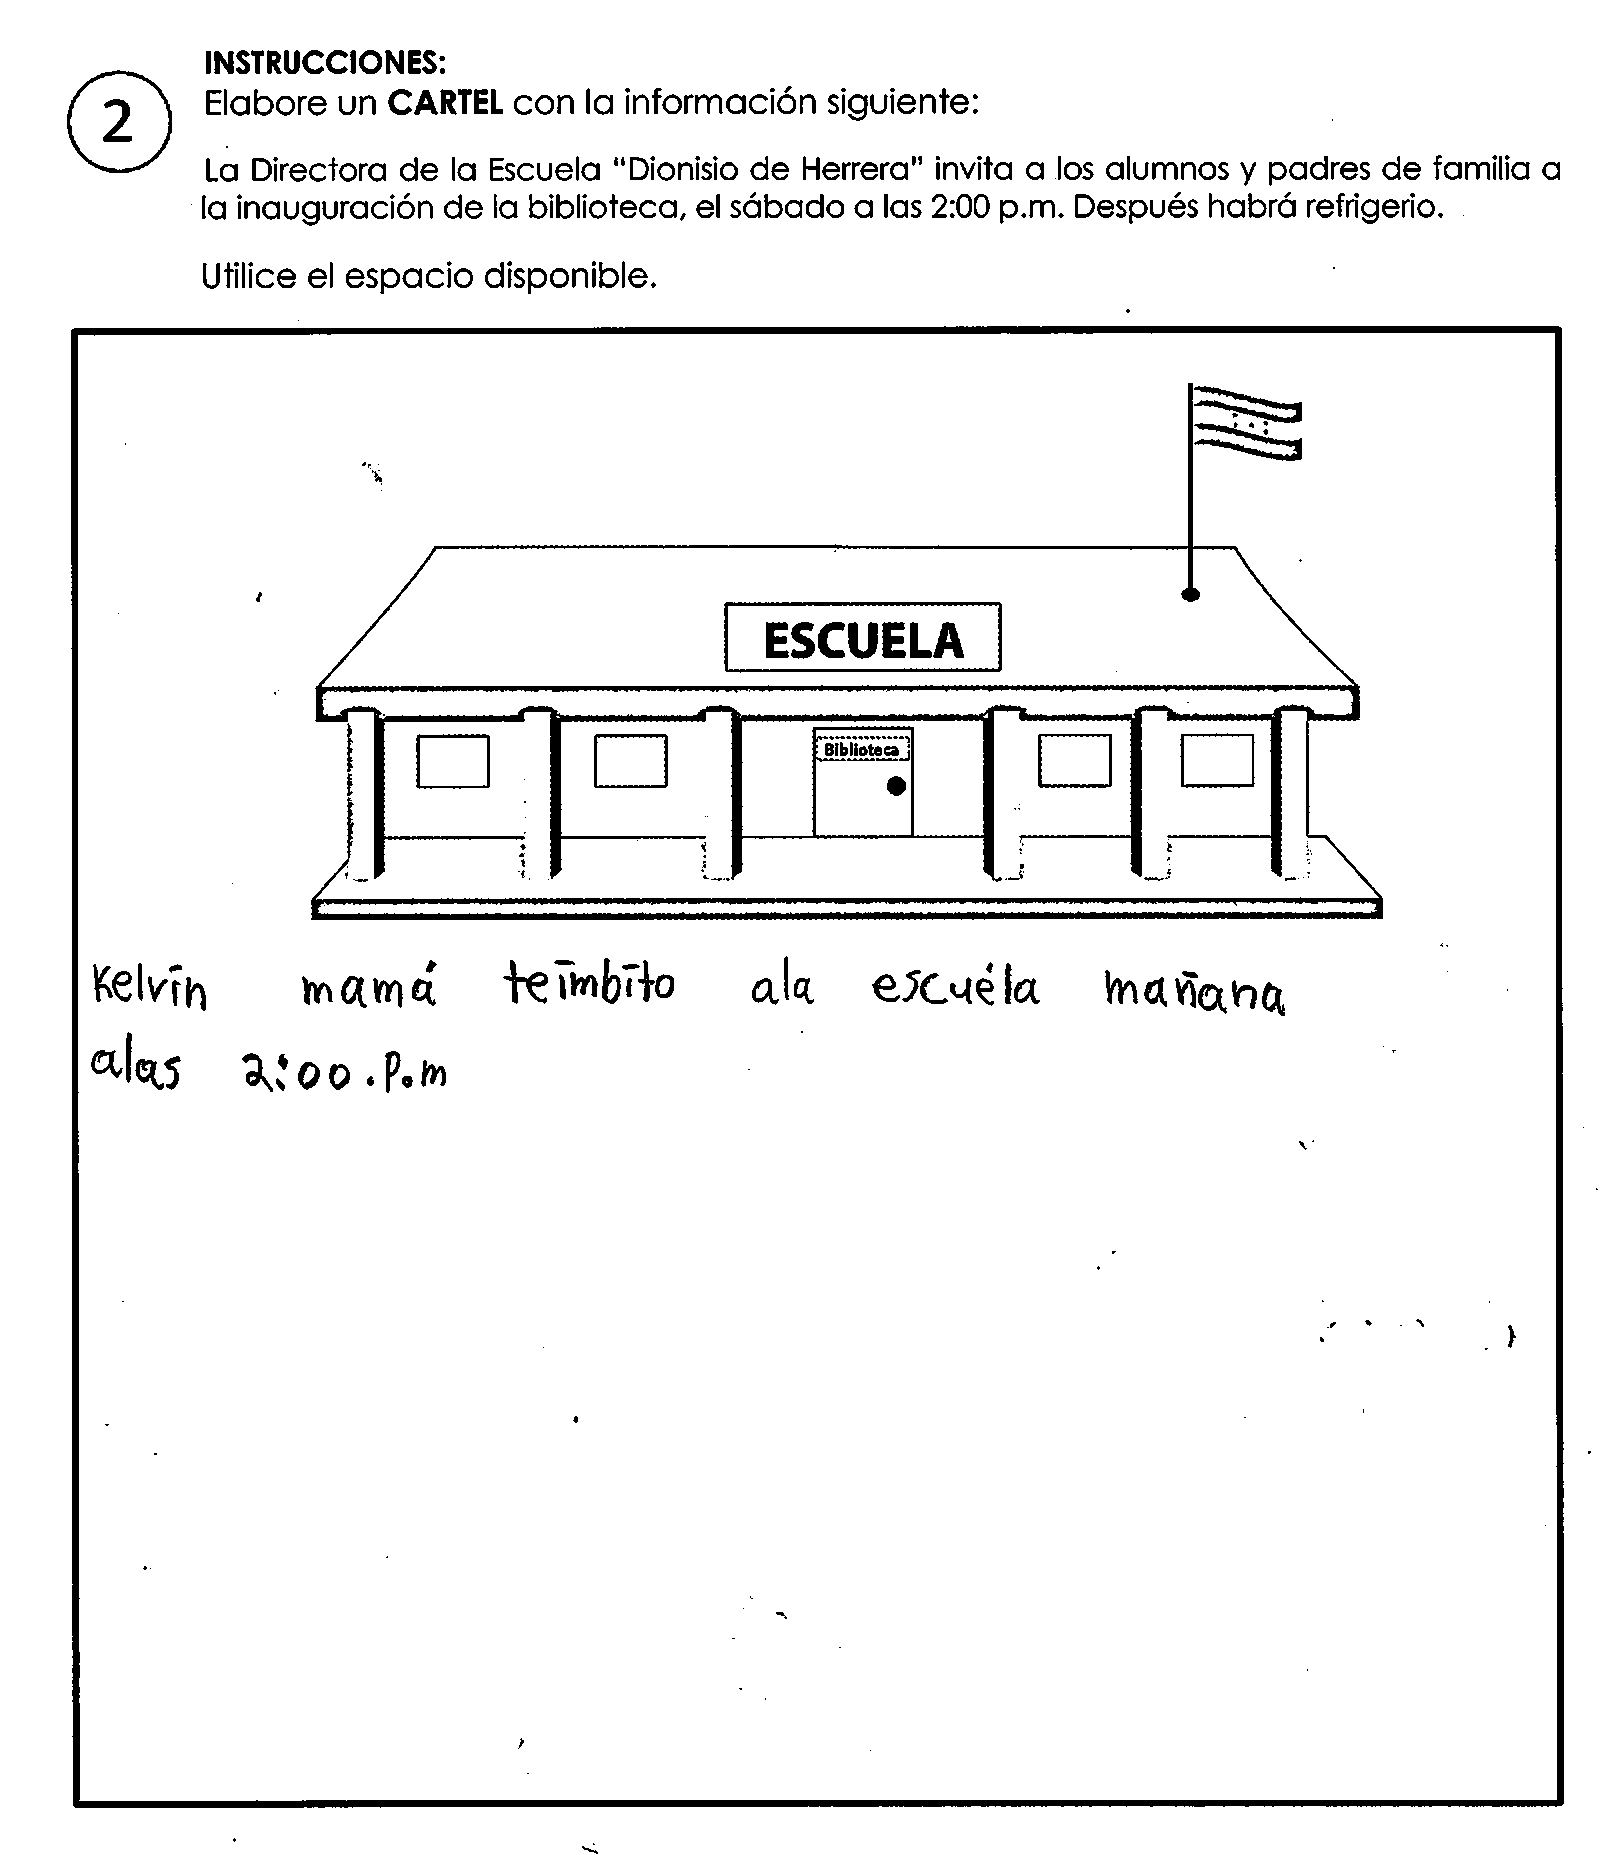 INSTRUCCIONES:
2
Elabore un CARTEL con la información siguiente:
La Directora de la Escuela "Dionisio de Herrera" invita a los alumnos y padres de familia a
la inauguración de la biblioteca, el sábado a las 2:00 p.m. Después habrá refrigerio.
Utilice el espacio disponible.
ESCUELA
Biblioteca
Kelvin mamá teimbito ala escuéla mañana
alas 2:00.P.m